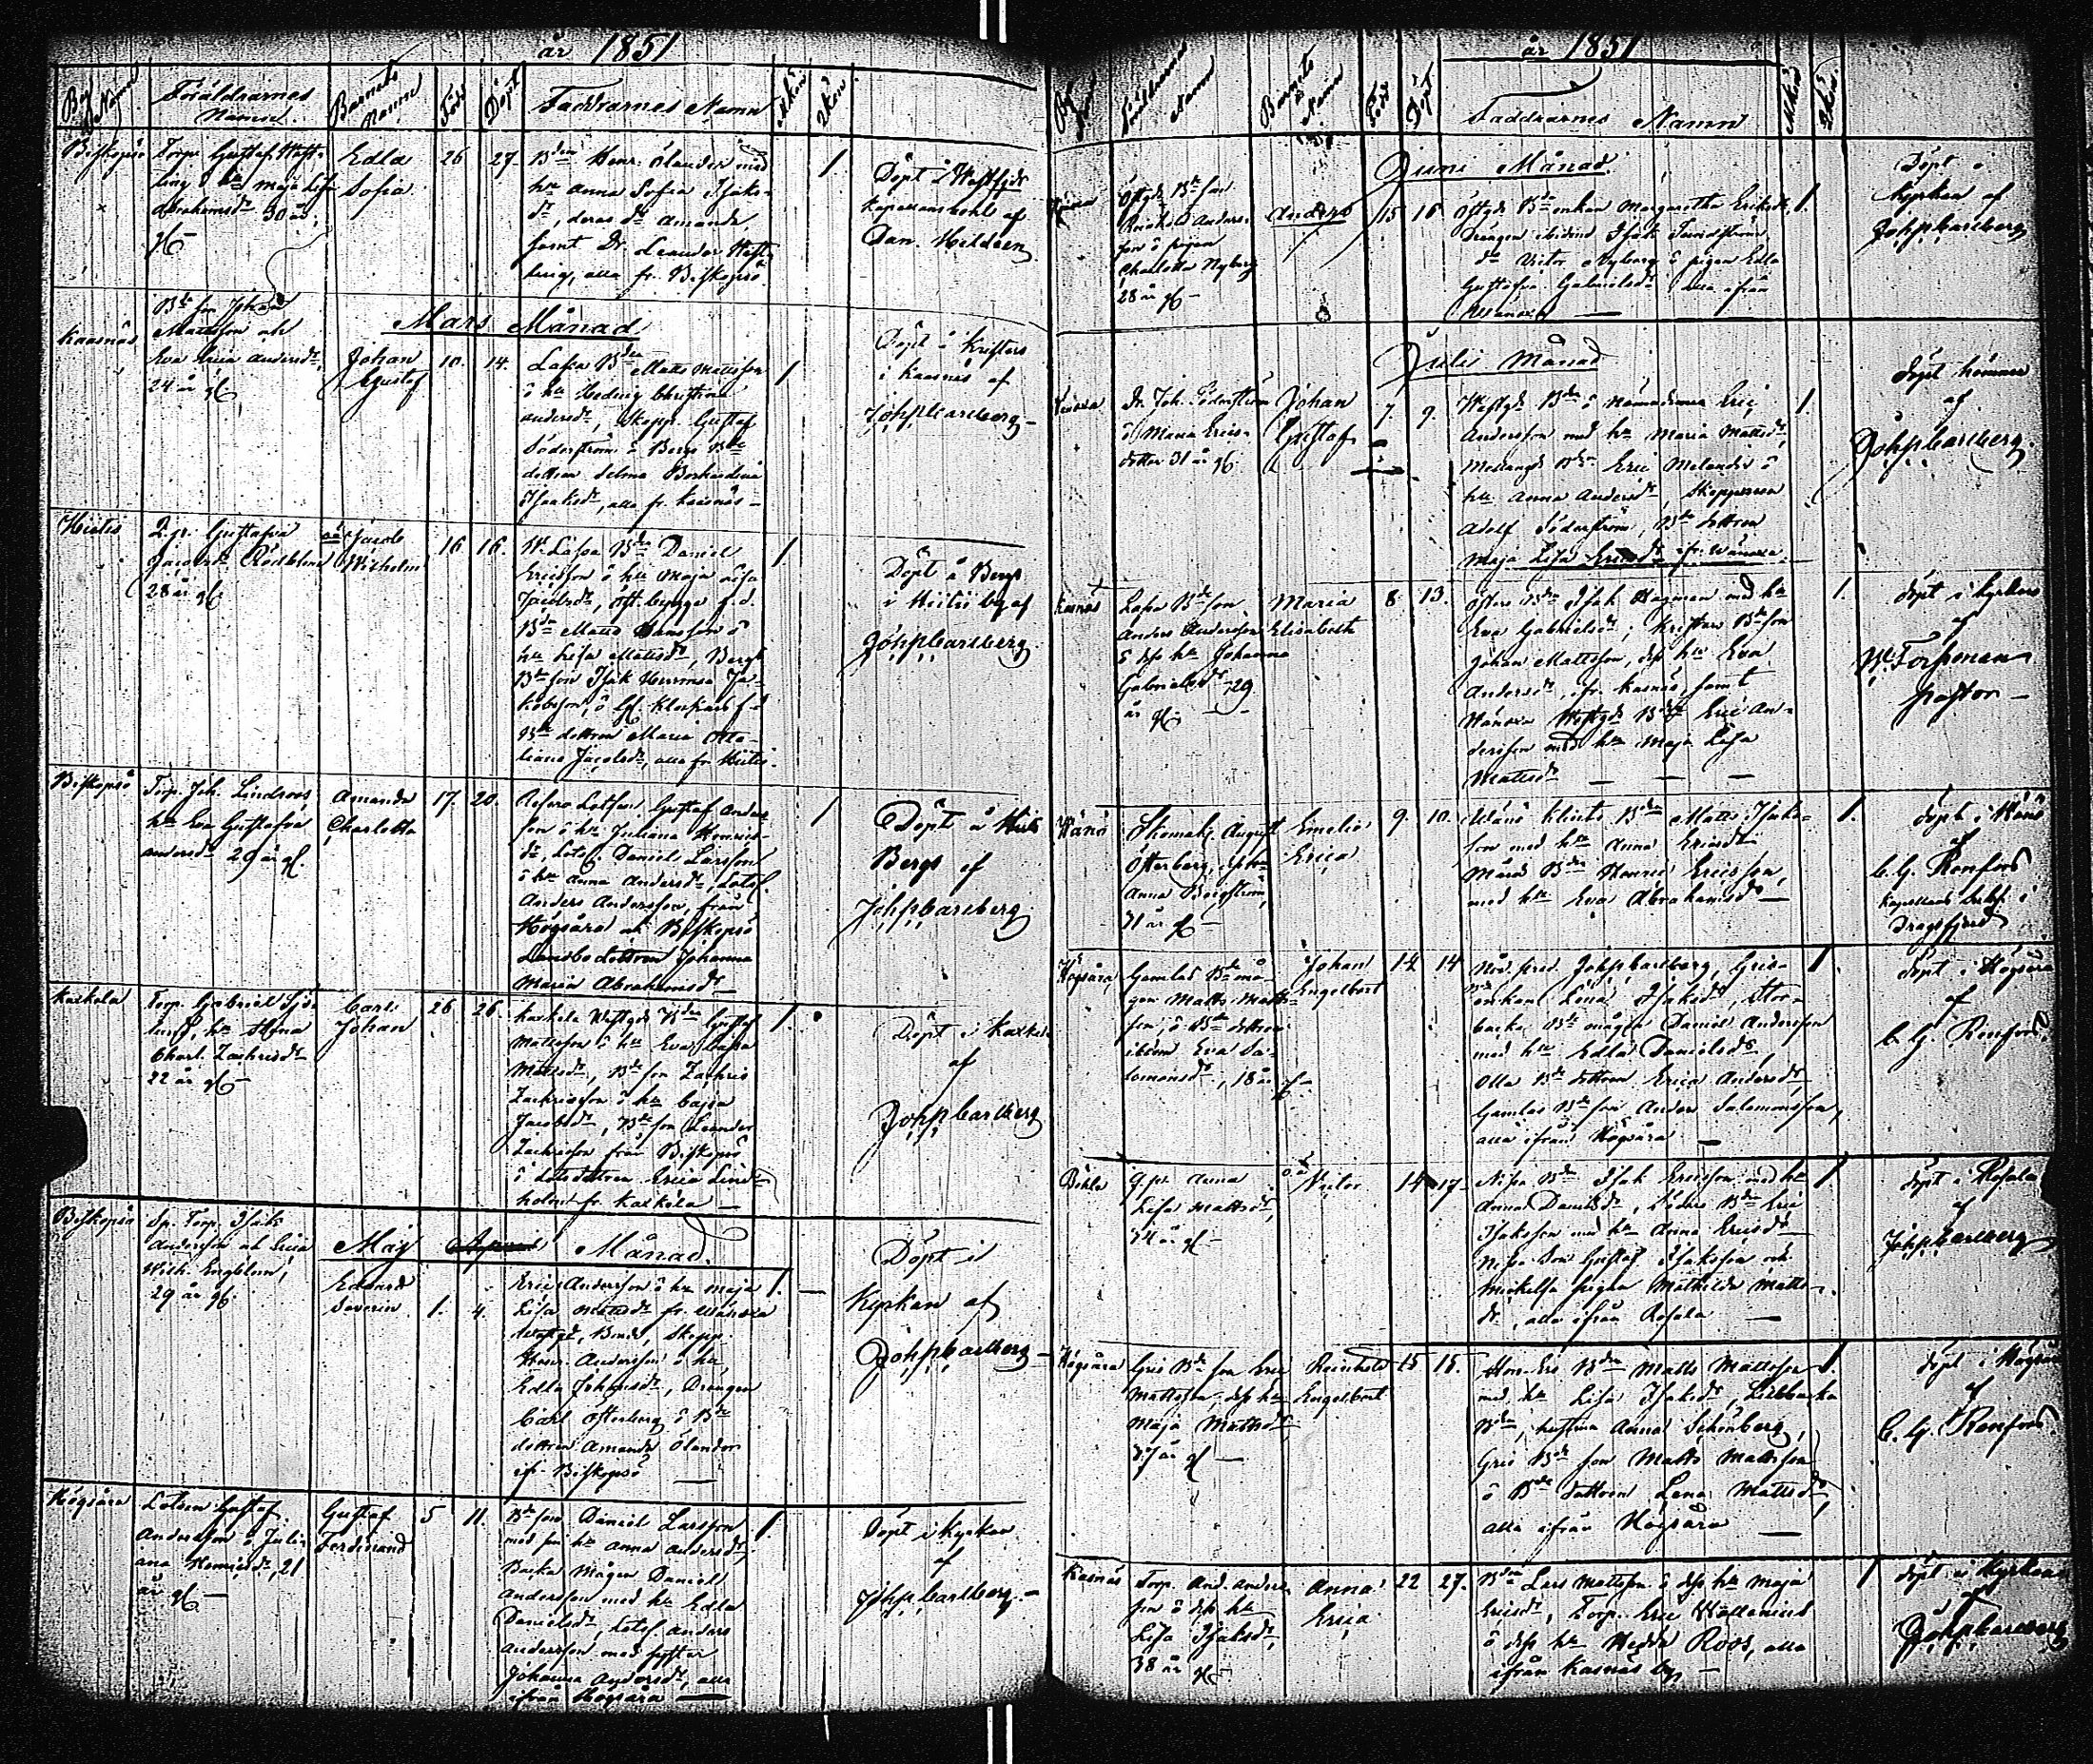 år 1851
By Namn
Föräldrarnes Namn
Barnets Namn
Född
Döpt
Faddrarnes Namn
Mkön
Qkön
Biskopsö
Torp. Gustaf West-
ling o hu Maja Lisa
Abrahamsdr 30 år,
Edla
Sofia
26
27.
Bden Henr. Ölander med
hu Anna Sofia Isaks-
dr, deras dr Amanda,
samt Dr. Leander West-
ling, alla fr. Biskopsö.
1
Döpt i Westfjerds
Kapellansbohl af
Dan. Hildeen
Mars Månad
Kasnäs
Bde son Johan
Mattsson och
Eva Erica Andersdr
24 år
Johan
Gustaf
10.
14.
Lassas Bden Matts Mattsson
o hu Hedvig Christina
Andersdr, Skepp. Gustaf
Söderström o Bergs Bde
dottren Selma
Isaksdr, alla fr. Kasnäs –
1
Döpt i Kristers
i Kasnäs af
Joh. Carlberg –
Hitis
Q.p. Gustafva
Jacobsdr Rödblom
28 år
oä Jacob
Wilhelm
16
16.
W. Lassa Bden Daniel
Ericsson o hu Maja Lisa
Jacobsdr,
Bden Matts Hansson o
hu Lisa Mattsdr, Bergs
Bde son Isak Ja-
kobsson, o
Bde dottren Maria Otte-
liana Jacobsdr, alla fr. Hitis.
1
Döpt å Bergs
i Hitis by af
Joh. Carlberg
Biskopsö
Torp. Joh. Lindroos
hu Eva Gustafva
Andersdr 29 år
Amanda
Charlotta
17.
20.
Lotsen Gustaf Anders-
son o hu Juliana Henrics-
dr, Lots. Daniel Larsson
o hu Anna Andersdr, Lots.
Anders Andersson, från
Högsåra och Biskopsö
dottren Johanna
Maria Abrahamsdr –
1
Döpt å Hitis
Bergs af
Joh. Carlberg
Kaxkela
Torp. Gabriel Sjö-
lund, hu Stina
Charl. Zachrisdr
22 år
Carl
Johan
26
26
Kaxkela Westgds Bden Gustaf
Mattsson o hu Eva Cajsa
Mattsdr, Bde son Zachris
Zachrisson o hu Cajsa
Jacobsdr, Bde son Leander
Zachrisson från Biskopsö
o Lotsdottren Erica Lind-
holm fr. Kaxkela –
1.
Döpt i Kaxkela
af
Joh. Carlberg
Biskopsö
Sp. Torp. Isak
Andersson och Erica
Wilh. Engblom,
29 år
Maij Månad.
Edvard
Severin
1.
4.
Eric Andersson o hu Maja
Lisa Mattsdr fr. Wänoxa
Westgd, Bonde, Skepp.
Henr. Andersson o hu
Edla Johansdr, Drängen
Carl Österberg o Bde
dottren Amanda Ölander
ifr. Biskopsö –
1. –
Döpt i
Kyrkan af
Joh. Carlberg –
Högsåra
Lotsen Gustaf
Andersson o Juli-
ana Henricsdr, 21
år –
Gustaf
Ferdinand
5
11.
Bde son Daniel Larsson
med sin hu Anna Andersdr,
Backa Mågen Daniel
Andersson med hu Edla
Danielsdr Lots. Anders
Andersson med syster
Johanna Andersdr, alla
ifrån Högsåra –
1
Döpt i Kyrkan
af
Joh. Carlberg –
år 1851
By Namn
Föräldrarnes Namn
Barnets Namn
Född
Döpt
Faddrarnes Namn
Mkön
Qkön
Juni Månad.
Östgds Bde son
Reinhold Anders-
son o pigan
Charlotta Nyberg
28 år –
Anders
15
16
Östgds Bde enkan Margaretha Ericsdr,
Drängen Isak Sundström
dr Victor Nyberg o pigan Edla
Gustafva Gabrielsdr alla ifrån
1.
Döpt i
Kyrkan af
Joh. Carlberg
Julii Månad
Wänoxa
Dr. Joh. Söderström
o Maria Erics-
dotter 31 år
Johan
Gustaf
7.
9.
Westgds Bden o Nämndeman Eric
Andersson med hu Maria Mattsdr,
Mellangds Bden Eric Melander o
hu Anna Andersdr, Skepparen
Adolf Söderström, Bde dottren
Maja Lisa Ericsdr ifr. Wänoxa
1.
döpt hemma
af
Joh. Carlberg.
Kasnäs
Lassa Bde son
Anders Andersson
o dess hu Johanna
Gabrielsdr 29
år
Maria
Elisabeth
8
13.
Östers Bden Isak Hagman med hu
Eva Gabrielsdr, Kristers Bde son
Johan Mattsson, dess hu Eva
Andersdr, ifr. Kasnäs, samt
Wänoxa Westgds Bden Eric An-
dersson med hu Maja Lisa
Mattsdr – – –
1.
döpt i kyrkan
af
W. Forsman
Pastor –
Wänö
Skomak. August
Österberg, dess hu
Anna Bergström,
31 år –
Emelie
Erica
9.
10.
Wänö Klints Bden Matts Isaks-
son med hu Anna Ericsdr
Bden Henric Ericsson,
med hu Eva Abrahamsdr –
1.
döpt i Wänö
af
C. G. Renfors
i
Dragsfjerd
Högsåra
Gamlas Bde må-
gen Matts Matts-
son, o Bde dottren
Eva Sa-
lomonsdr, 18 år
Johan
Engelbert
14
14
Joh. Carlberg, Gris-
enkan Lena Isaksdr, Stor-
backa Bde mågen Daniel Andersson
med hu Edla Danielsdr
Olla Bde dottren Erica Andersdr
Gamlas Bde son Anders Salomonsson,
alla ifrån Högsåra –
1.
döpt i Högsåra
af
C. G. Renfors
Böhle
Q.p. Anna
Lisa Mattsdr,
34 år –
oä
Victor
14
17.
Nissa Bden Isak Ericsson med hu
Anna Danielsdr, Söders Bden Eric
Isaksson med hu Anna Ericsdr
Nissa Son Gustaf Isaksson och
Mickelsa pigan Mathilda Matts-
dr, alla ifrån Rosala –
1
döpt i Rosala
af
Joh. Carlberg
Högsåra
Gris Bde son Eric
Mattsson, dess hu
Maja Mattsdr
37 år –
Reinhold
Engelbert
15
15.
Bden Matts Mattsson
med hu Lisa Isaksdr, Lillbacka
Bde, hustrun Anna Schönberg,
Gris Bde son Matts Mattsson
o Bde dottren Lena Mattsdr,
alla ifrån Högsåra –
1.
döpt i Högsåra
af
C. G. Renfors.
Kasnäs
Torp. And. Anders-
son o dess hu
Lisa Isaksdr,
38 år
Anna
Erica
22
27.
Bden Lars Mattsson o dess hu Maja
Ericsdr, Torp. Eric Wallenius
o dess hu Hedda Roos, alla
ifrån Kasnäs by –
1
döpt i Kyrkan
af
Joh. Carlberg